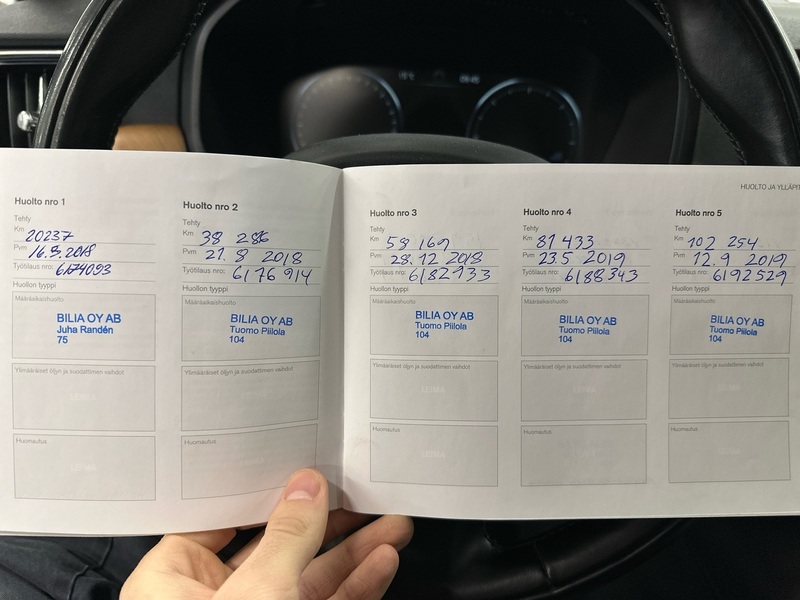 HUOLTO JA YLLÄPIT
Huolto nro 1
Tehty
Km 20237
Pvm 16.3.2018
Työtilaus nro: 6174093
Huollon tyyppi
Määräaikaishuolto
BILIA OY AB
Juha Randén
75
Ylimääräiset öljyn ja suodattimen vaihdot
LEIMA
Huomautus
LEIMA
Huolto nro 2
Tehty
Km 38 286
Pvm 21.8 2018
Työtilaus nro: 6176 914
Huollon tyyppi
Määräaikaishuolto
BILIA OY AB
Tuomo Piilola
104
Ylimääräiset öljyn ja suodattimen vaihdot
Huomautus
Huolto nro 3
Tehty
Km 59 169
Pvm 28.12 2018
Työtilaus nro: 6182933
Huollon tyyppi
Määräaikaishuolto
BILIA OY AB
Tuomo Piilola
104
Ylimääräiset öljyn ja suodattimen vaihdot
LEIMA
Huomautus
LEIMA
Huolto nro 4
Tehty
Km 81 433
Pvm 23.5 2019
Työtilaus nro: 6188343
Huollon tyyppi
Määräaikaishuolto
BILIA OY AB
Tuomo Piilola
104
Ylimääräiset öljyn ja suodattimen vaihdot
LEIMA
Huomautus
LEIMA
Huolto nro 5
Tehty
Km 102 254
Pvm 12.9 2019
Työtilaus nro: 6192529
Huollon tyyppi
Määräaikaishuolto
BILIA OY AB
Tuomo Piilola
104
Ylimääräiset öljyn ja suodattimen vaihdot
LEIMA
Huomautus
LEIMA